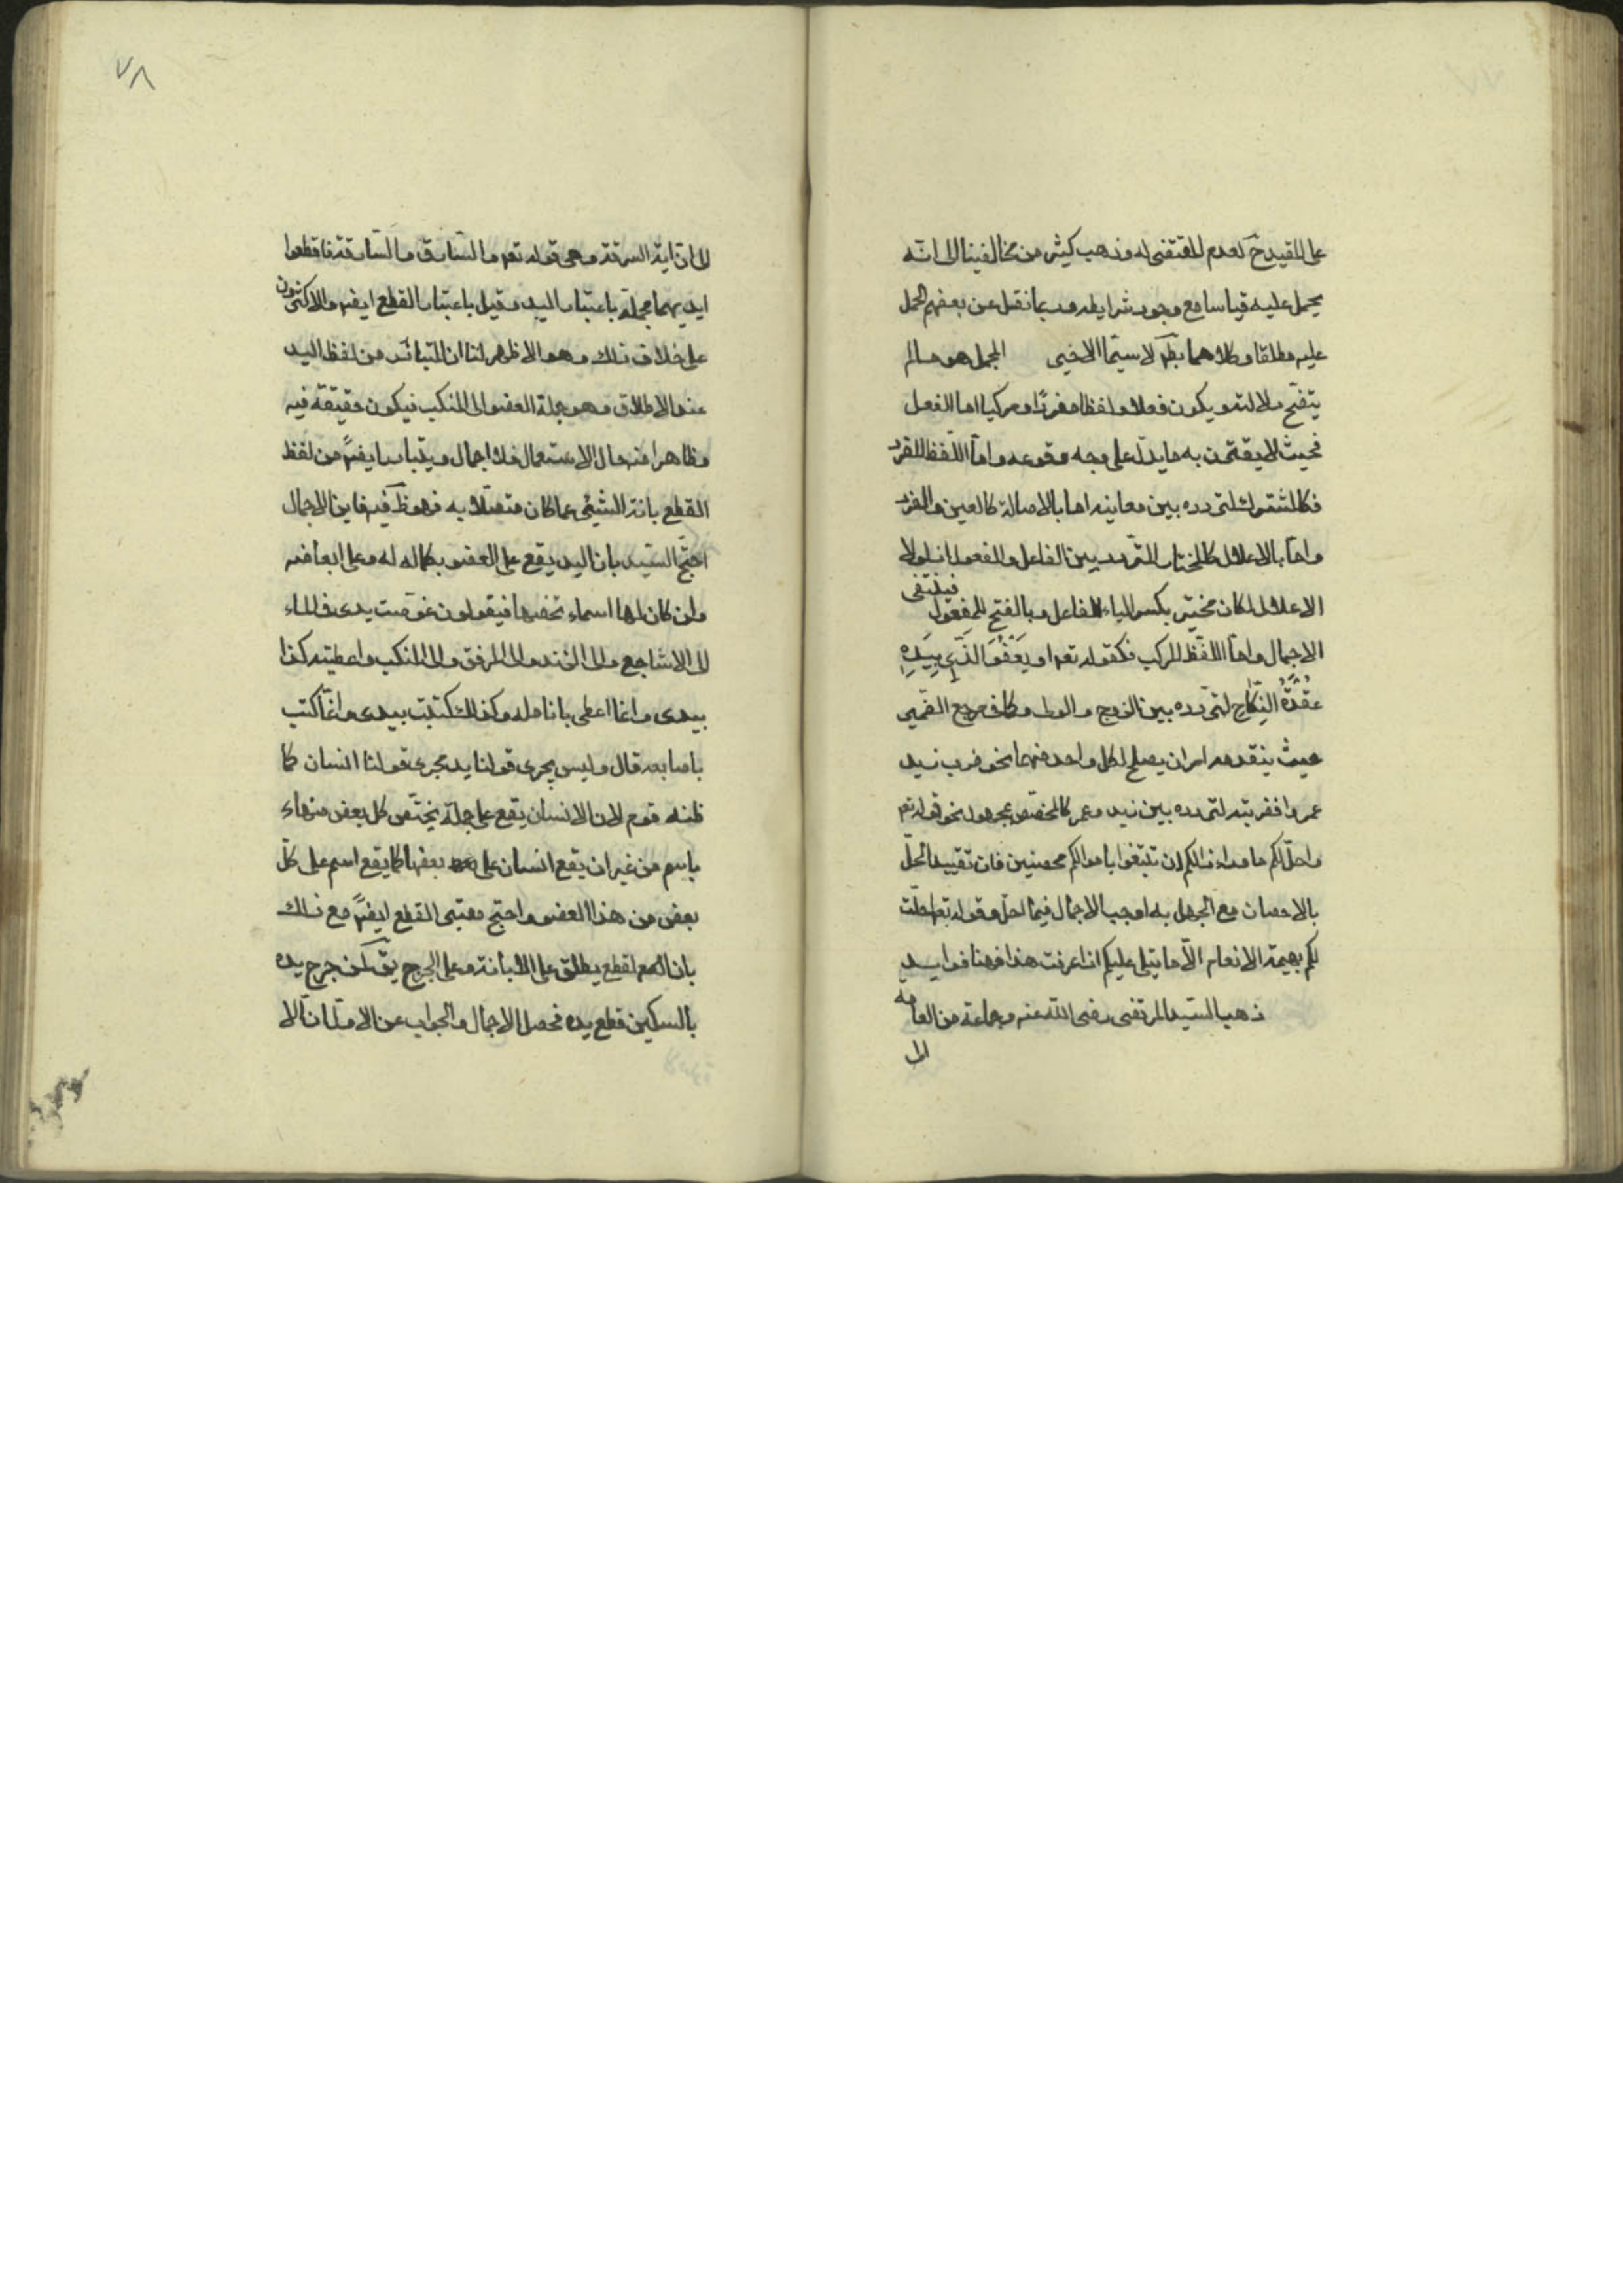 على المقيد ح لعدم المقتضى له وذهب كثير من مخالفينا الى انه
يحمل عليه قياسا مع وجود شرايطه وربما نقل عن بعضهم الحمل
عليه مطلقا وكلاهما بط لا سيما الاخير المجمل هو ما لم
يتضح دلالته ويكون فعلا ولفظا مفردا ومركبا اما الفعل
فحيث لا يقترن به ما يدل على وجه وقوعه واما اللفظ المفرد
فكالمشترك لتردده بين معانيه اما بالاصالة كالعين والقرء
واما بالاعلال كالمختار المتردد بين الفاعل والمفعول اذ لولا
الاعلال لكان مختير بكسر الياء للفاعل وبالفتح للمفعول فينتفى
الاجمال واما اللفظ المركب فكقوله تعم او يَعْفُوَ الَّذِي بِيَدِهِ
عُقْدَةُ النِّكَاحِ لتردده بين الزوج والولى وكما فى مرجع الضمير
حيث يتقدمه امران يصلح لكل واحد منهما نحو ضرب زيد
عمروا فضربته لتردده بين زيد وعمر كالمخصص بمجهول نحو قوله تعم
واحل لكم ما وراء ذالكم ان تبتغوا باموالكم محصنين فان تقييد الحل
بالاحصان مع الجهل به اوجب الاجمال فيما احل وقوله تعم احلت
لكم بهيمة الانعام الا ما يتلى عليكم اذا عرفت هذا فهنا فوايد
ذهب السيد المرتضى رضى الله عنه وجماعة من العامه
الى
٧٨
الى ان اية السرقة وهى قوله تعم والسارق والسارقة فاقطعوا
ايديهما مجملة باعتبار اليد وقيل باعتبار القطع ايضا والاكثرون
على خلاف ذلك وهو الاظهر لنا ان المتبادر من لفظ اليد
عند الاطلاق وهو جملة العضو الى المنكب فيكون حقيقة فيه
وظاهرا منه حال الاستعمال فلا اجمال ويتبادر ايضا من لفظ
القطع بانة الشيئى عما كان متصلا به فهو ظ فيه فاين الاجمال
احتج السيد بان اليد يقع على العضو بكماله له وعلى ابعاضه
وان كان لها اسماء تخصها فيقولون غوصت يدى فى الماء
الى الاشاجع والى الزند والى المرفق والى المنكب واعطيته كذا
بيدى وانما اعطى بانامله وكذلك كتبت بيدى وانما كتب
باصابعه قال وليس يجرى قولنا يد مجرى قولنا انسان كما
ظنه قوم لان الانسان يقع على جملة يختص كل بعض منها
باسم من غير ان يقع انسان على بعضها كما يقع اسم على كل
بعض من هذا العضو واحتج معتبر القطع ايضا مع ذلك
بان القطع يطلق على الابانة وعلى الجرح يق لمن جرح يده
بالسكين قطع يده فحصل الاجمال والجواب عن الاول ان الا